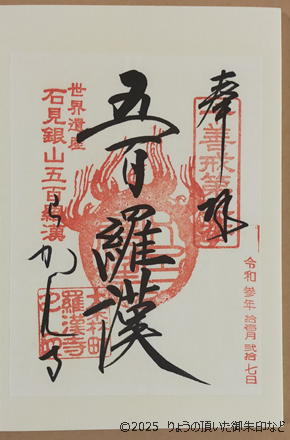 奉拝
令和 参年 拾壱月 弐拾七日
五百羅漢
世界遺産
石見銀山五百羅漢
らかんじ
大森町
羅漢寺
©2025 りょうの頂いた御朱印など